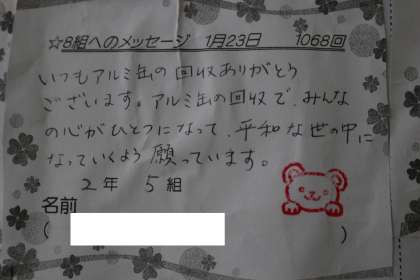 ☆8組へのメッセージ 1月23日 1068回
いつもアルミ缶の回収ありがとう
ございます。アルミ缶の回収で、みんな
の心がひとつになって、平和な世の中に
なっていくよう願っています。
2年 5組
名前
( )